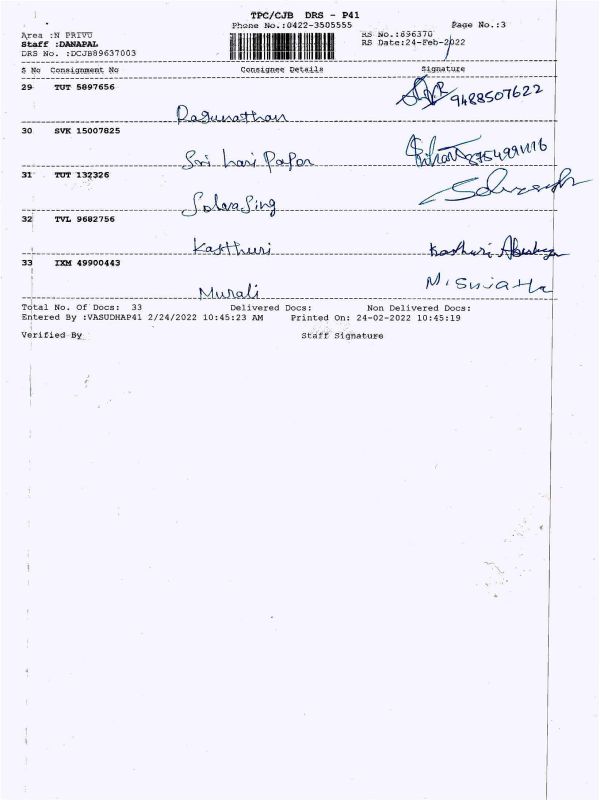 TPC/CJB DRS - P41
Phone No.:0422-3505555 Page No.:3
Area :N PRIVU RS No.:896370
Staff :DANAPAL RS Date:24-Feb-2022
DRS No. :DCJB89637003
S No Consignment No Consignee Details Signature
29 TUT 5897656 9488507622
Ragunathan
30 SVK 15007825
Sri hari Papar
31 TUT 132326
Selvasing
32 TVL 9682756
Kasthuri
33 IXM 49900443 M. Sujatha
Murali
Total No. Of Docs: 33 Delivered Docs: Non Delivered Docs:
Entered By :VASUDHAP41 2/24/2022 10:45:23 AM Printed On: 24-02-2022 10:45:19
Verified By Staff Signature